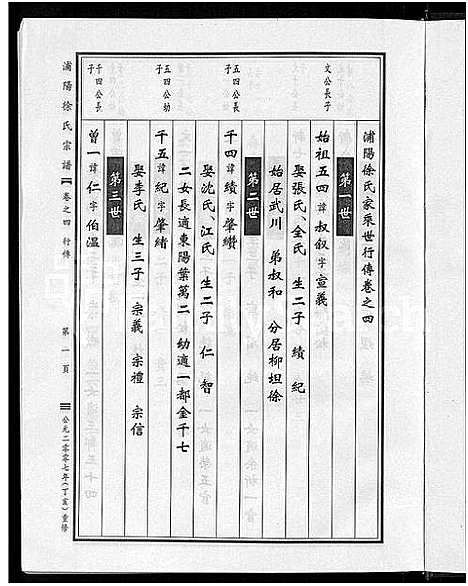 浦陽徐氏家乘世行傳卷之四
第一世
文公長子
始祖五四諱叔叙字宣義
娶張氏、仝氏 生二子 績 紀
始居武川 弟叔和 分居柳坦徐
第二世
五四公長子
千四諱績字肇纘
娶沈氏、江氏 生二子 仁 智
二女長適東陽葉萬二 幼適一都金千七
五四公幼子
千五諱紀字肇緒
娶李氏 生三子 宗義 宗禮 宗信
第三世
千四公長子
曾一諱仁字伯温
浦陽徐氏宗譜 卷之四 行傳 第一頁 公元二零零七年(丁亥)重修